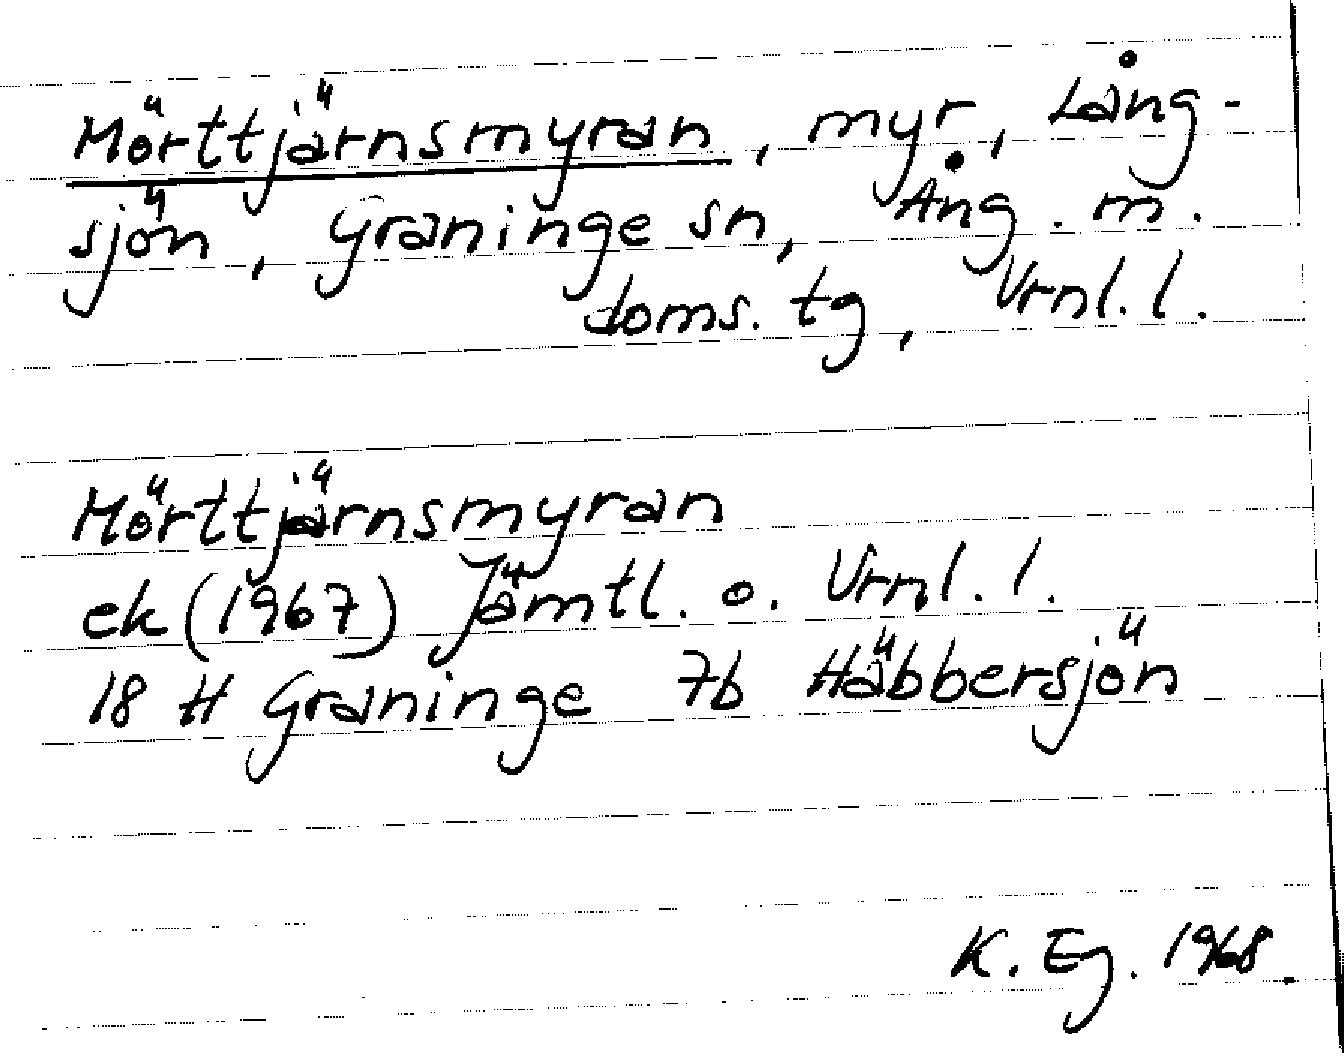 Mörttjärnsmyran, myr, Lång-
sjön, Graninge sn, Ång. m.
doms. tg, Vrnl. l.
Mörttjärnsmyran
ek (1967) Jämtl. o. Vrnl. l.
18 H Graninge 7b Häbbersjön
K. Eg. 1968.